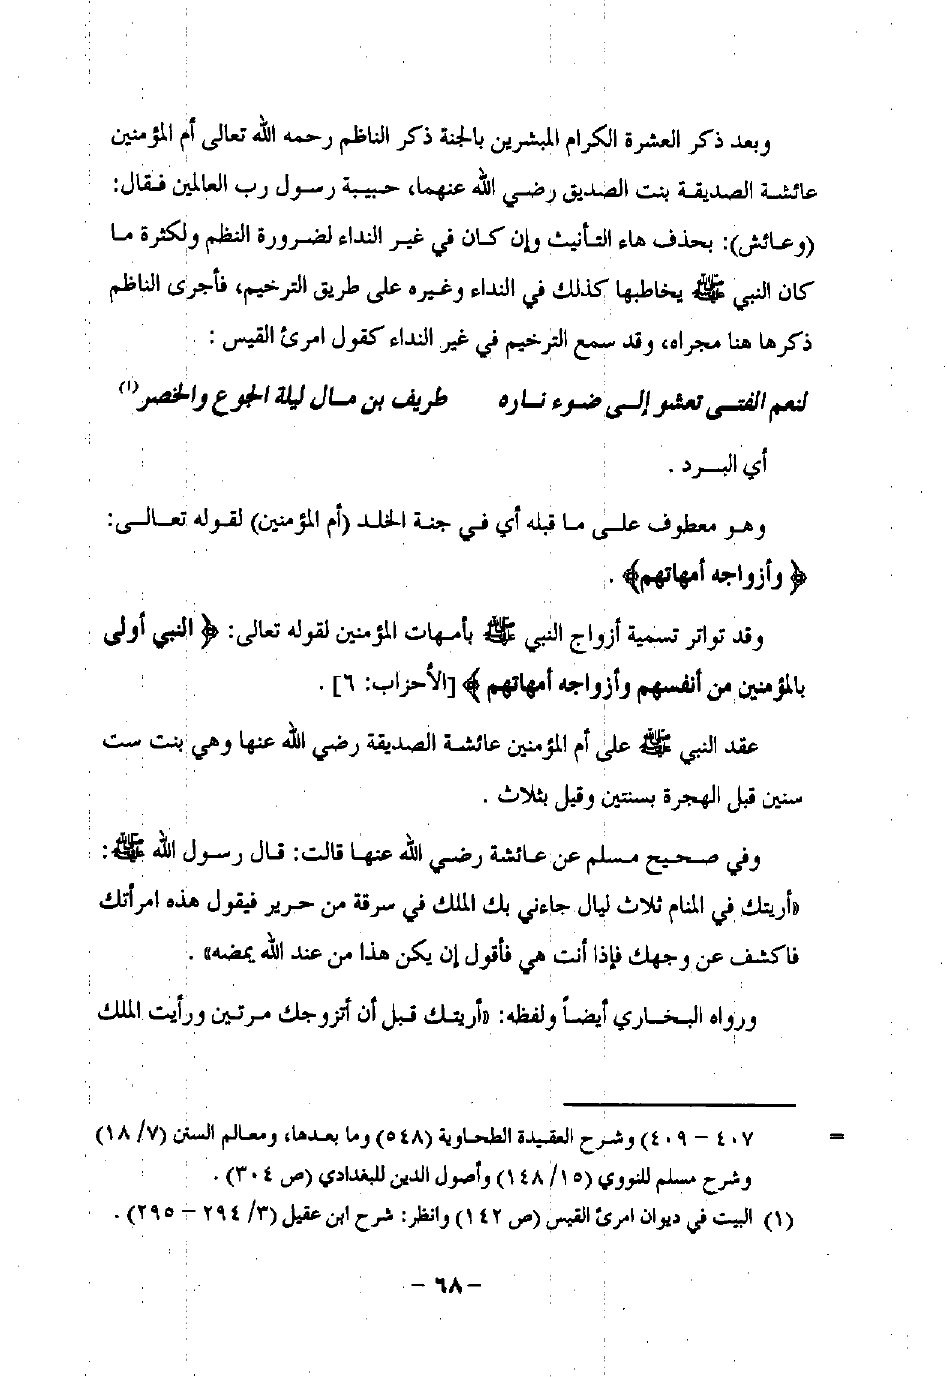 وبعد ذكر العشرة الكرام المبشرين بالجنة ذكر الناظم رحمه الله تعالى أم المؤمنين
عائشة الصديقة بنت الصديق رضي الله عنهما، حبيبة رسول رب العالمين فقال:
(وعائش): بحذف هاء التأنيث وإن كان في غير النداء لضرورة النظم ولكثرة ما
كان النبي ﷺ يخاطبها كذلك في النداء وغيره على طريق الترخيم، فأجرى الناظم
ذكرها هنا مجراه، وقد سمع الترخيم في غير النداء كقول امرئ القيس :
لنعم الفتى تعشو إلى ضوء ناره     طريف بن مال ليلة الجوع والخصر(١)
أي البرد .
وهو معطوف على ما قبله أي في جنة الخلد (أم المؤمنين) لقوله تعالى:
﴿ وأزواجه أمهاتهم﴾ .
وقد تواتر تسمية أزواج النبي ﷺ بأمهات المؤمنين لقوله تعالى: ﴿ النبي أولى
بالمؤمنين من أنفسهم وأزواجه أمهاتهم ﴾ [الأحزاب: ٦] .
عقد النبي ﷺ على أم المؤمنين عائشة الصديقة رضي الله عنها وهي بنت ست
سنين قبل الهجرة بسنتين وقيل بثلاث .
وفي صحيح مسلم عن عائشة رضي الله عنها قالت: قال رسول الله ﷺ:
«أريتك في المنام ثلاث ليال جاءني بك الملك في سرقة من حرير فيقول هذه امرأتك
فاكشف عن وجهك فإذا أنت هي فأقول إن يكن هذا من عند الله يمضه» .
ورواه البخاري أيضاً ولفظه: «أريتك قبل أن أتزوجك مرتين ورأيت الملك
= ٤٠٧ – ٤٠٩) وشرح العقيدة الطحاوية (٥٤٨) وما بعدها، ومعالم السنن (٧/ ١٨)
وشرح مسلم للنووي (١٥/ ١٤٨) وأصول الدين للبغدادي (ص ٣٠٤) .
(١) البيت في ديوان امرئ القيس (ص ١٤٢) وانظر: شرح ابن عقيل (٣/ ٢٩٤ – ٢٩٥) .
– ٦٨ –